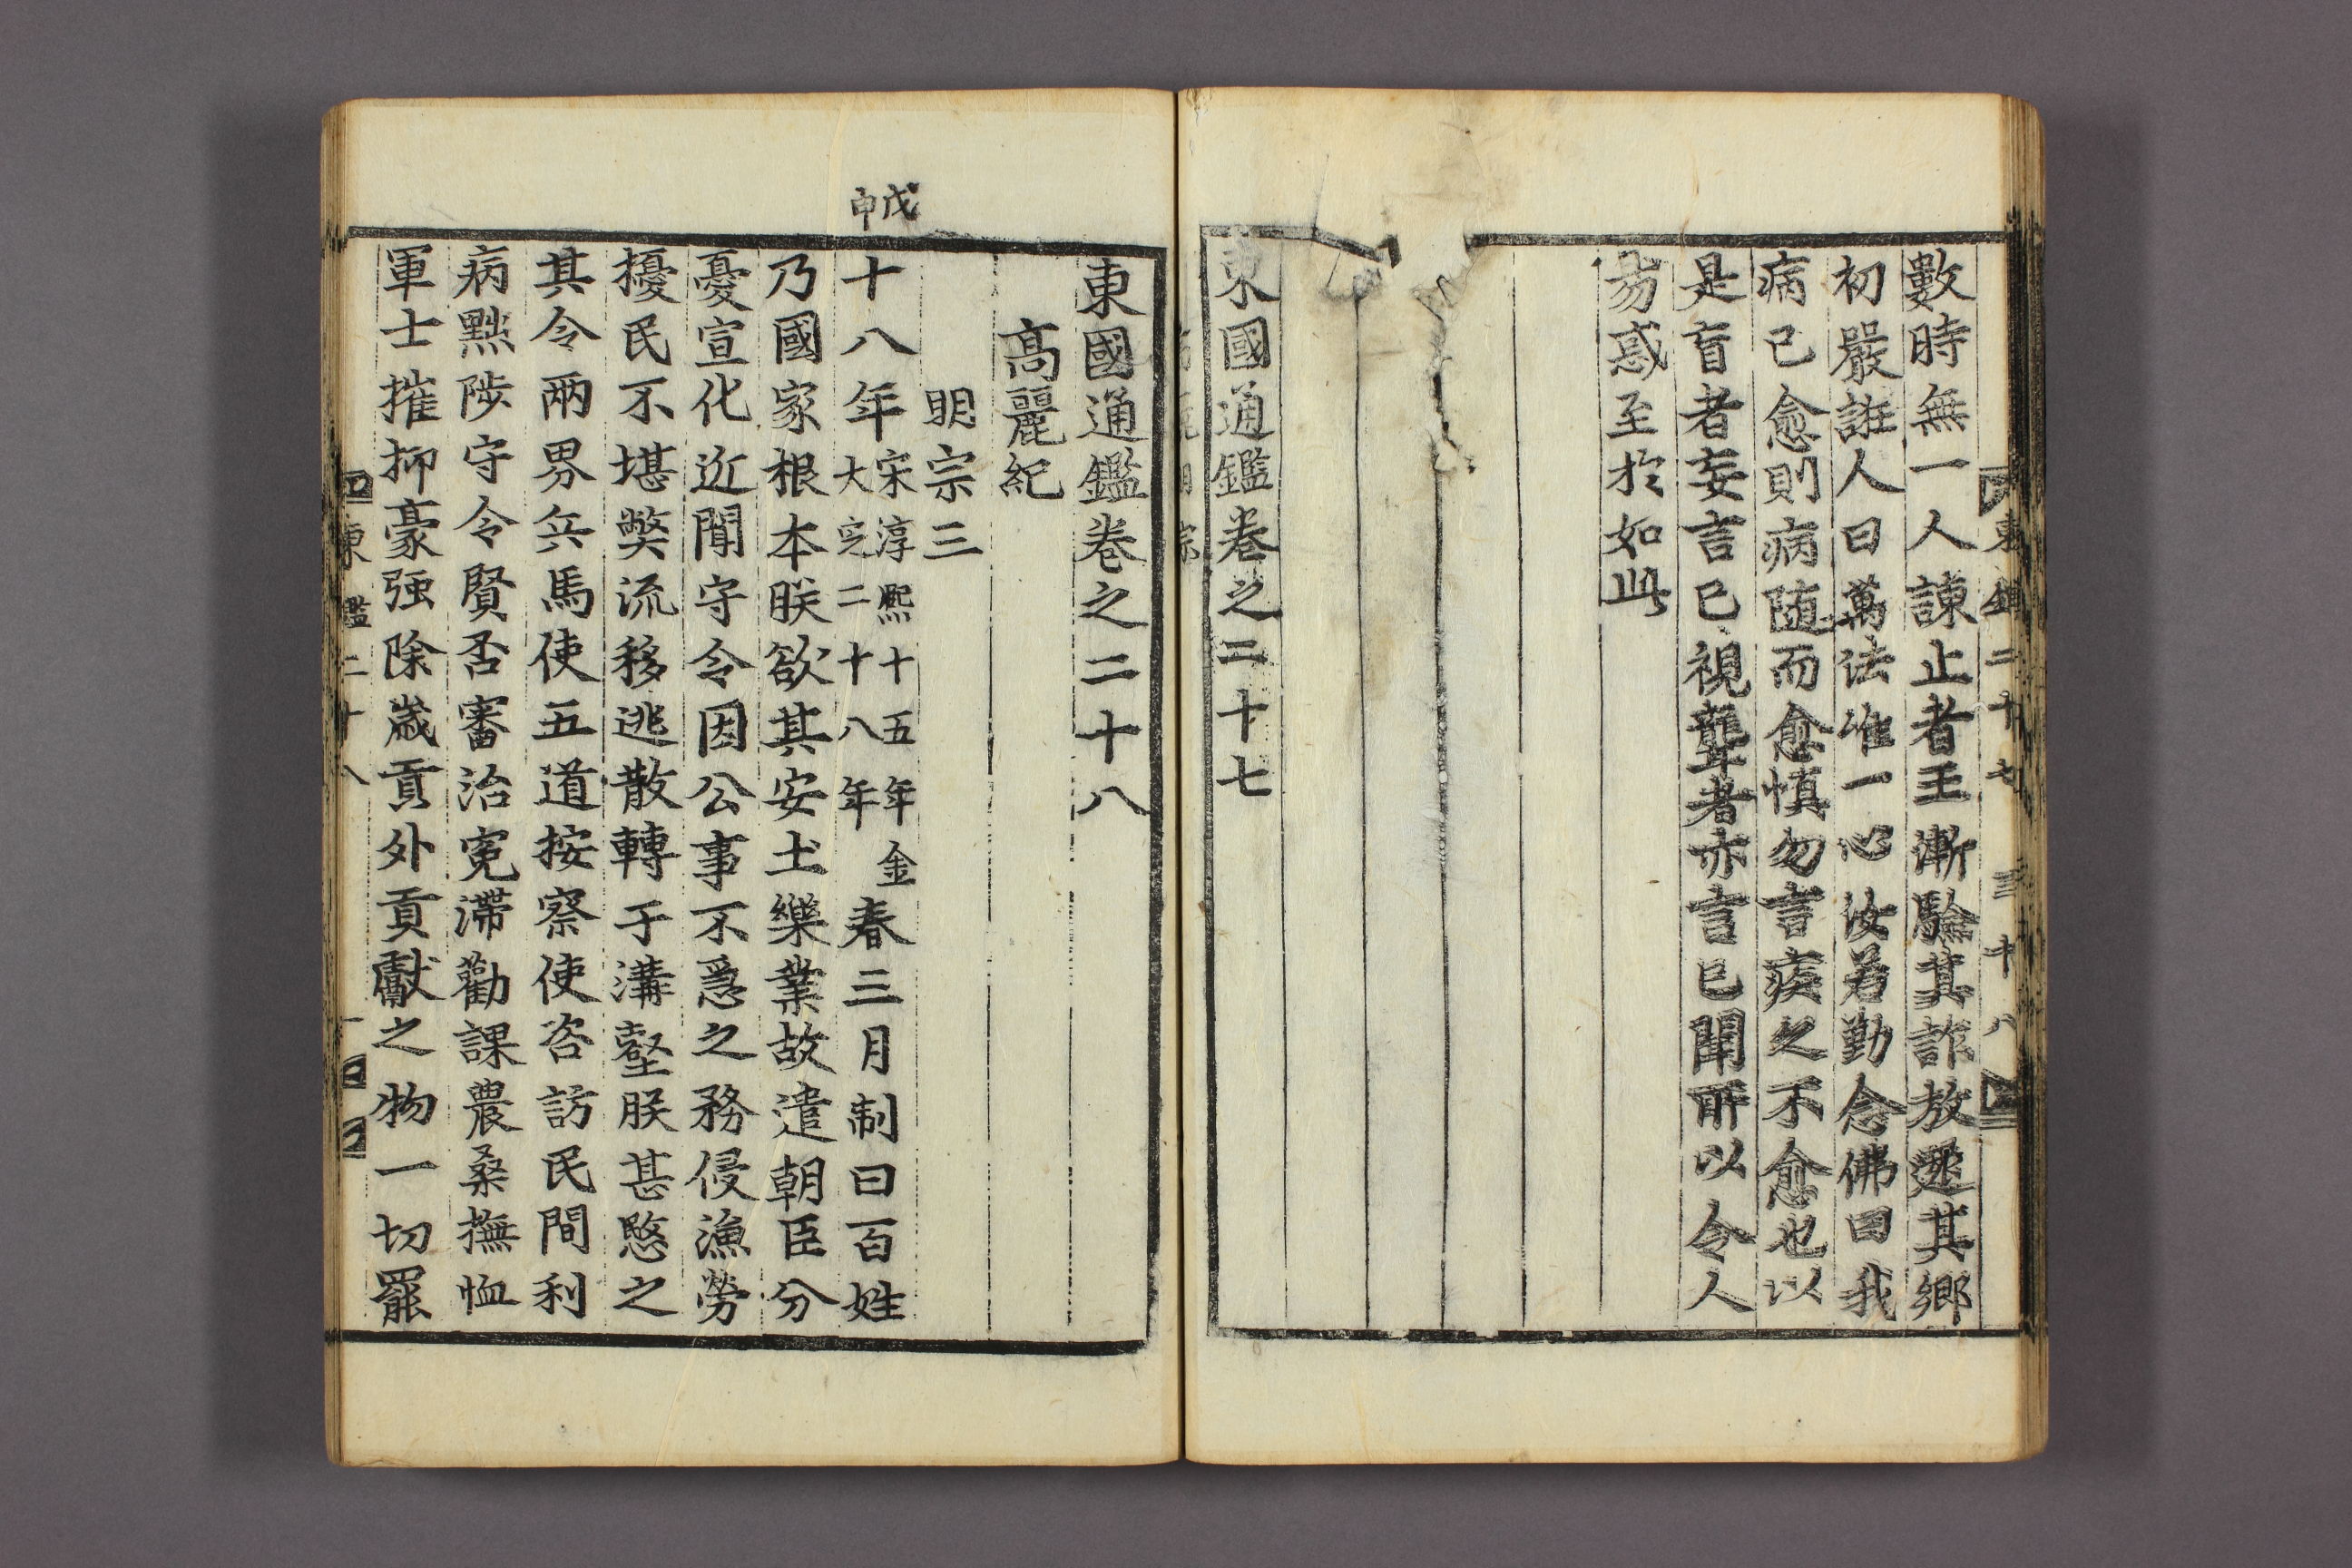 數時無一人諫止者王漸驗其詐放還其鄉
初嚴誑人曰萬法唯一心汝若勤念佛曰我
病已愈則病随而愈慎勿言疾之不愈也以
是盲者妄言已視聾者亦言已聞所以令人
易惑至於如此
東國通鑑卷之二十七
戊申
東國通鑑卷之二十八
高麗紀
明宗三
十八年宋淳熙十五年金大定二十八年春三月制曰百姓
乃國家根本朕欲其安土樂業故遣朝臣分
憂宣化近聞守令因公事不急之務侵漁勞
擾民不堪獘流移逃散轉于溝壑朕甚愍之
其令兩界兵馬使五道按察使咨訪民間利
病黜陟守令賢否審治冤滯勸課農桑撫恤
軍士摧抑豪强除歲貢外貢獻之物一切罷
東鑑二十八
一